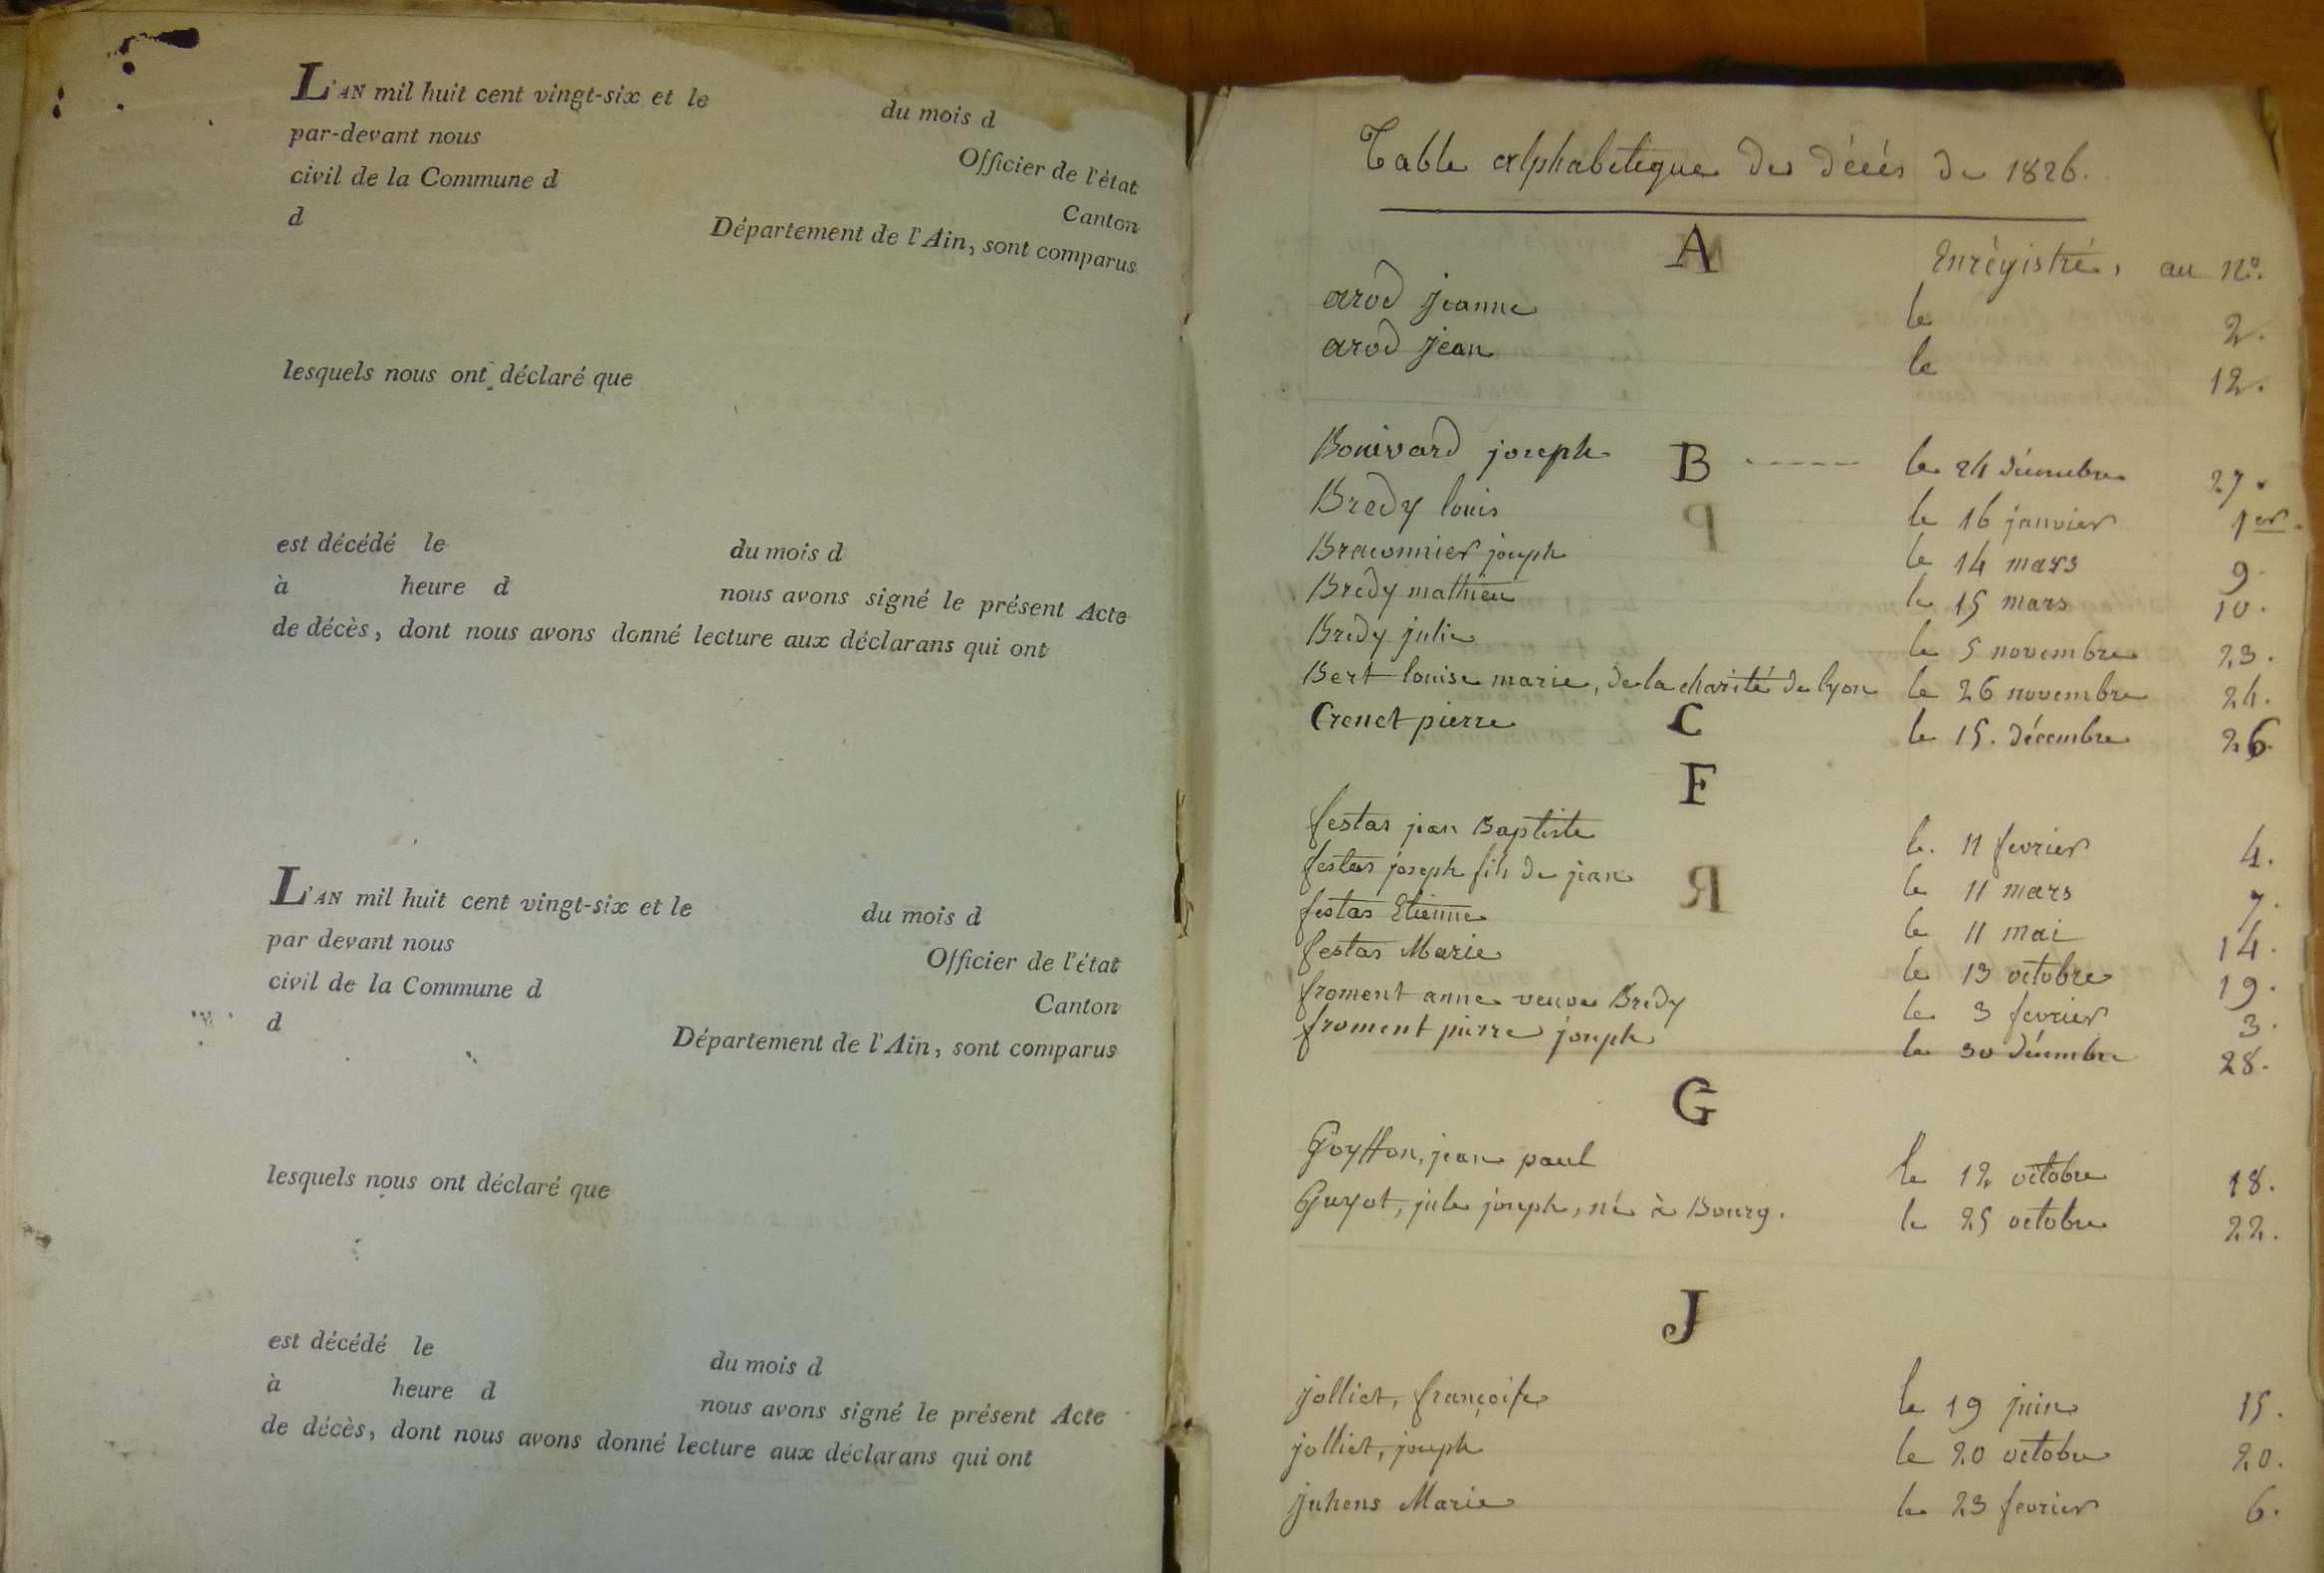 L'AN mil huit cent vingt-six et le du mois d
par-devant nous Officier de l'état
civil de la Commune d Canton
d Département de l'Ain, sont comparus
lesquels nous ont déclaré que
est décédé le du mois d
à heure d nous avons signé le présent Acte
de décès, dont nous avons donné lecture aux déclarans qui ont
L'AN mil huit cent vingt-six et le du mois d
par devant nous Officier de l'état
civil de la Commune d Canton
d Département de l'Ain, sont comparus
lesquels nous ont déclaré que
est décédé le du mois d
à heure d nous avons signé le présent Acte
de décès, dont nous avons donné lecture aux déclarans qui ont
Table alphabetique des décés de 1826.
A
Enrégistré, au No.
arod jeanne le 2.
arod jean le 12.
B
Bonivard joseph le 24 décembre 27.
Bredy louis le 16 janvier 1er.
Braconnier joseph le 14 mars 9.
Bredy mathieu le 15 mars 10.
Bredy julie le 5 novembre 23.
Bert louise marie, de la charité de lyon le 26 novembre 24.
C
Crenet pierre le 15. décembre 26.
F
festas jean Baptiste le. 11 fevrier 4.
festas joseph fils de jean le 11 mars 7.
festas Etienne le 11 mai 14.
festas Marie le 13 octobre 19.
froment anne veuve Bredy le 3 fevrier 3.
froment pierre joseph le 30 décembre 28.
G
Goyffon, jean paul le 12 octobre 18.
Guyot, jule joseph, né à Bourg. le 25 octobre 22.
J
jolliet, françoise le 19 juin 15.
jolliet, joseph le 20 octobre 20.
juhens Marie le 23 fevrier 6.